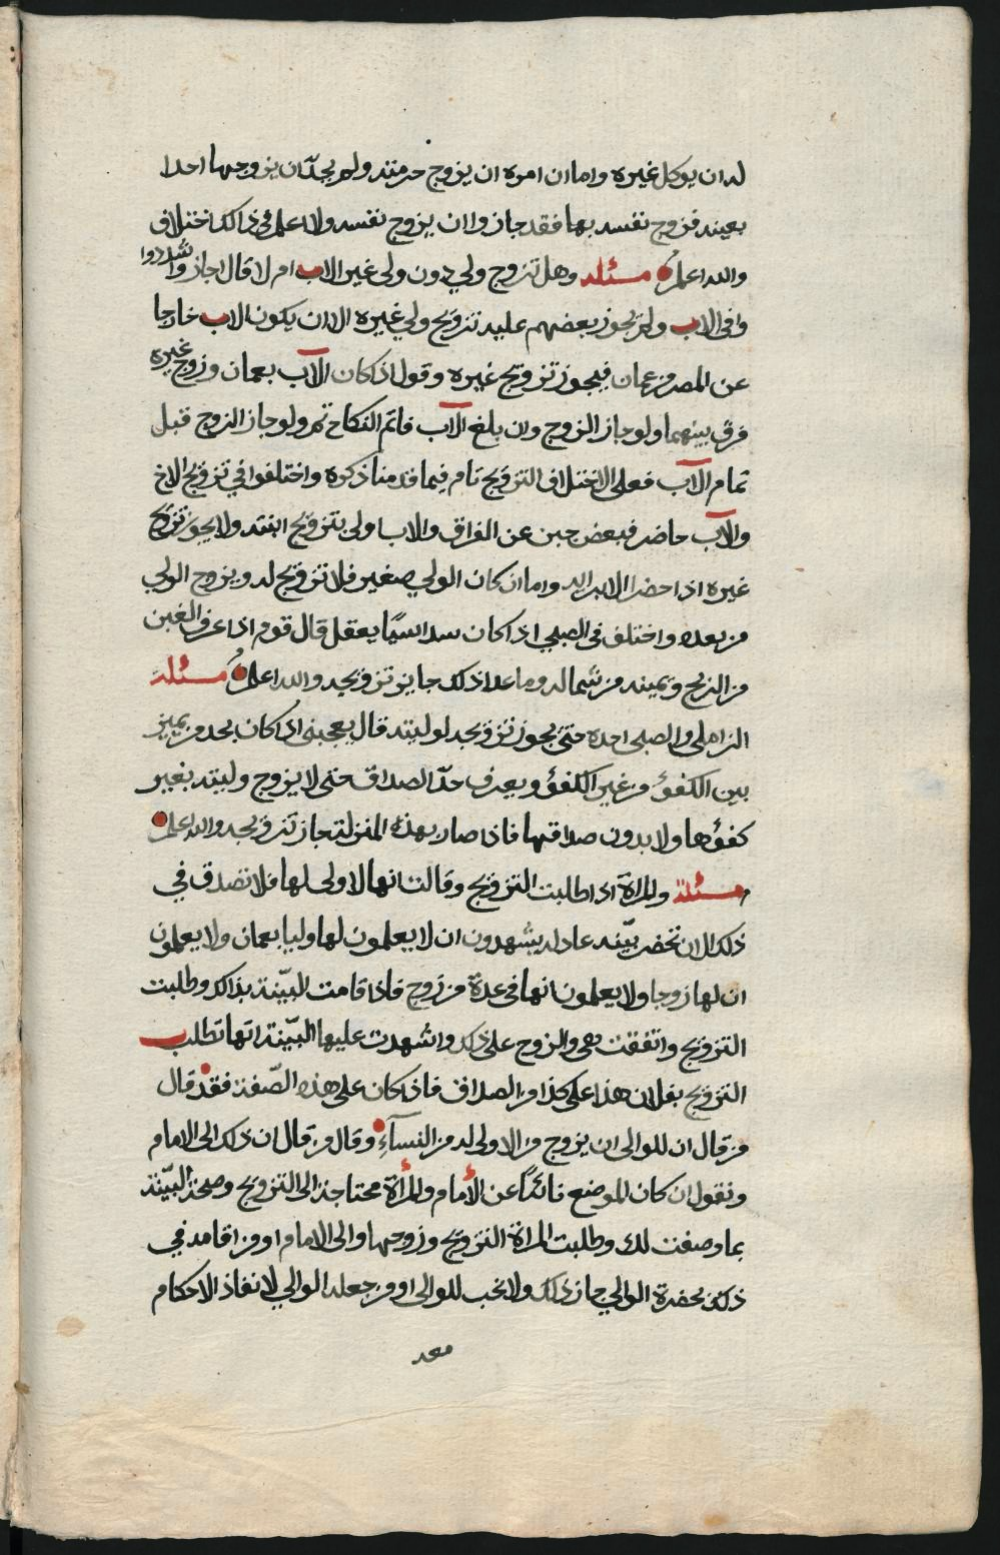 له ان يوكل غيره واما ان امره ان يزوج حرمته ولم يحدّ ان يزوجها احدا
بعينه فزوج نفسه بها فقد جاز وان يزوج نفسه ولا علم في ذالك اختلاف
والله اعلم مسئله وهل تزوج ولي دون ولى غير الاب ام لا قال اجازوا شددوا
وا في الاب ولم يجوز بعضهم عليه تزويج ولي غيره الا ان يكون الاب خارجا
عن المصر من عمان فيجوز تزويج غيره وقول اذا كان الآب بعمان وزوج غيره
فرق بينهما ولو جاز الزوج وان بلغ الآب فاتم النكاح تم ولو جاز الزوج قبل
تمام الآب فعلى الاختلاف التزويج تام فيما قدمنا ذكره واختلفوا في تزويج الاخ
والآب حاضر فبعض جبن عن الفراق والاب اولى بتزويج ابنته ولا يجوز تزويج
غيره اذا حضر الاب اليه واما ان كان الولي صغير فلا تزويج له ويزوج الولي
من بعده واختلف فى الصبي اذا كان سداسيًا يعقل قال قوم اذا عرف الغبن
من الربح ويمينه من شماله وما عدا ذلك جايز تزويجه والله اعلم مسئلة
الزاملي والصبى احده حتى يجوز تزويجه لوليته قال يعجبنى اذا كان بحد من يميز
بين الكفؤ من غير الكفؤ ويعرف حدّ الصداق حتى لا يزوج وليته بغير
كفؤها ولا بدون صداقها فاذا صار بهذه المنزلة جاز تزويجه والله اعلم
مسئلة والمراة اذا طلبت التزويج وقالت انها لا ولي لها فلا تصدق في
ذلك الا ان تحضر بيّنه عادله يشهدون ان لا يعلمون لها وليا بعمان ولا يعلمون
ان لها زوجا ولا يعلمون انها فى عدة من زوج فاذا قامت البيّنة بذالك وطلبت
التزويج واتفقت هى والزوج على ذلك واشهدت عليها البيّنة انها تطلب
التزويج بفلان هذا على كذا من الصداق فاذا كان على هذه الصّفة فقد قال
من قال ان للوالى ان يزوج من لا ولى له من النسآء وقال من قال ان ذلك الى الامام
ونقول ان كان الموضع نائيًا عن الأمام والمرأة محتاجة الى التزويج وصحة البيّنة
بما وصفت لك وطلبت المراة التزويج وزوجها والى الامام او من اقامه في
ذلك بحضرة الوالي جاز ذلك ولا نحب للوالى او من جعله الوالي لانفاذ الاحكام